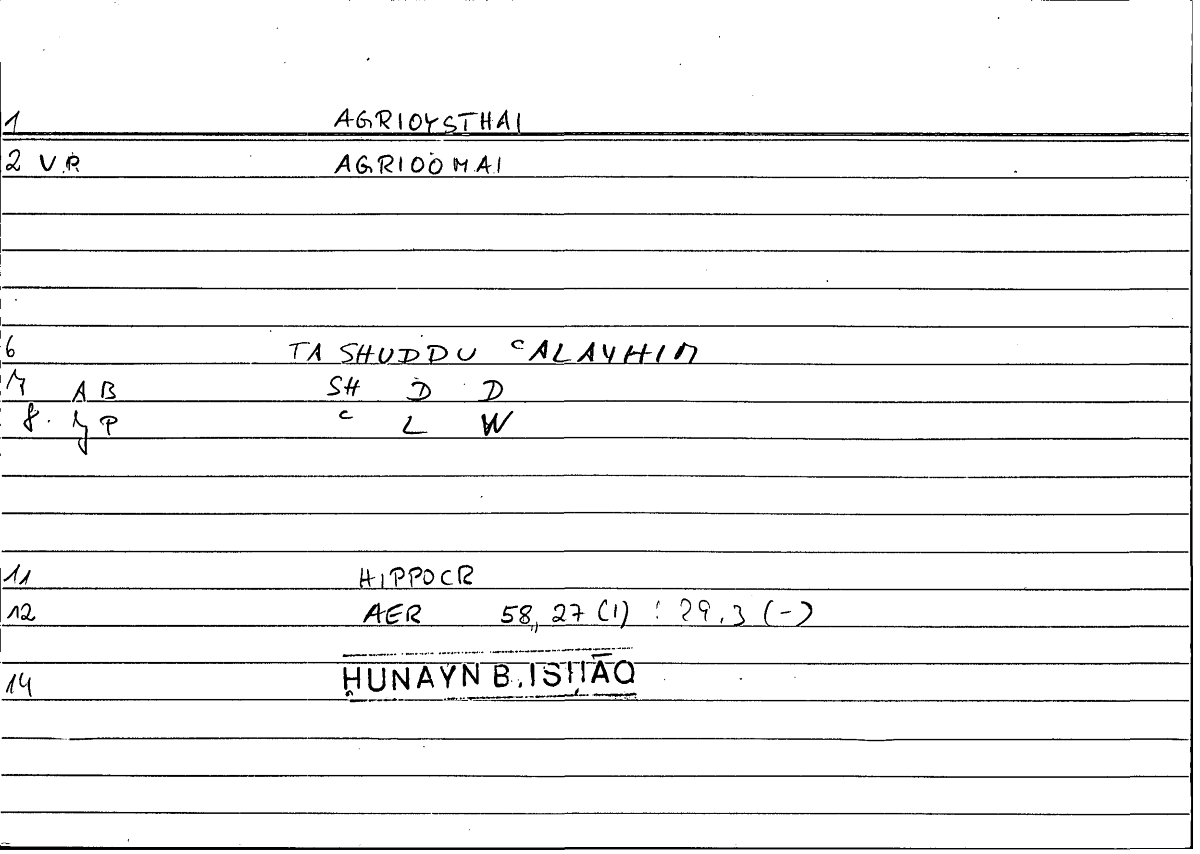 1 AGRIOYSTHAI
2 V.P. AGRIOOMAI
6 TASHUDDU ᶜALAYHIM
7 AB SH D D
8. P ᶜ L W
11 HIPPOCR
12 AER 58,27 (1) : 29.3 (-)
14 ḤUNAYN B. ISḤĀQ